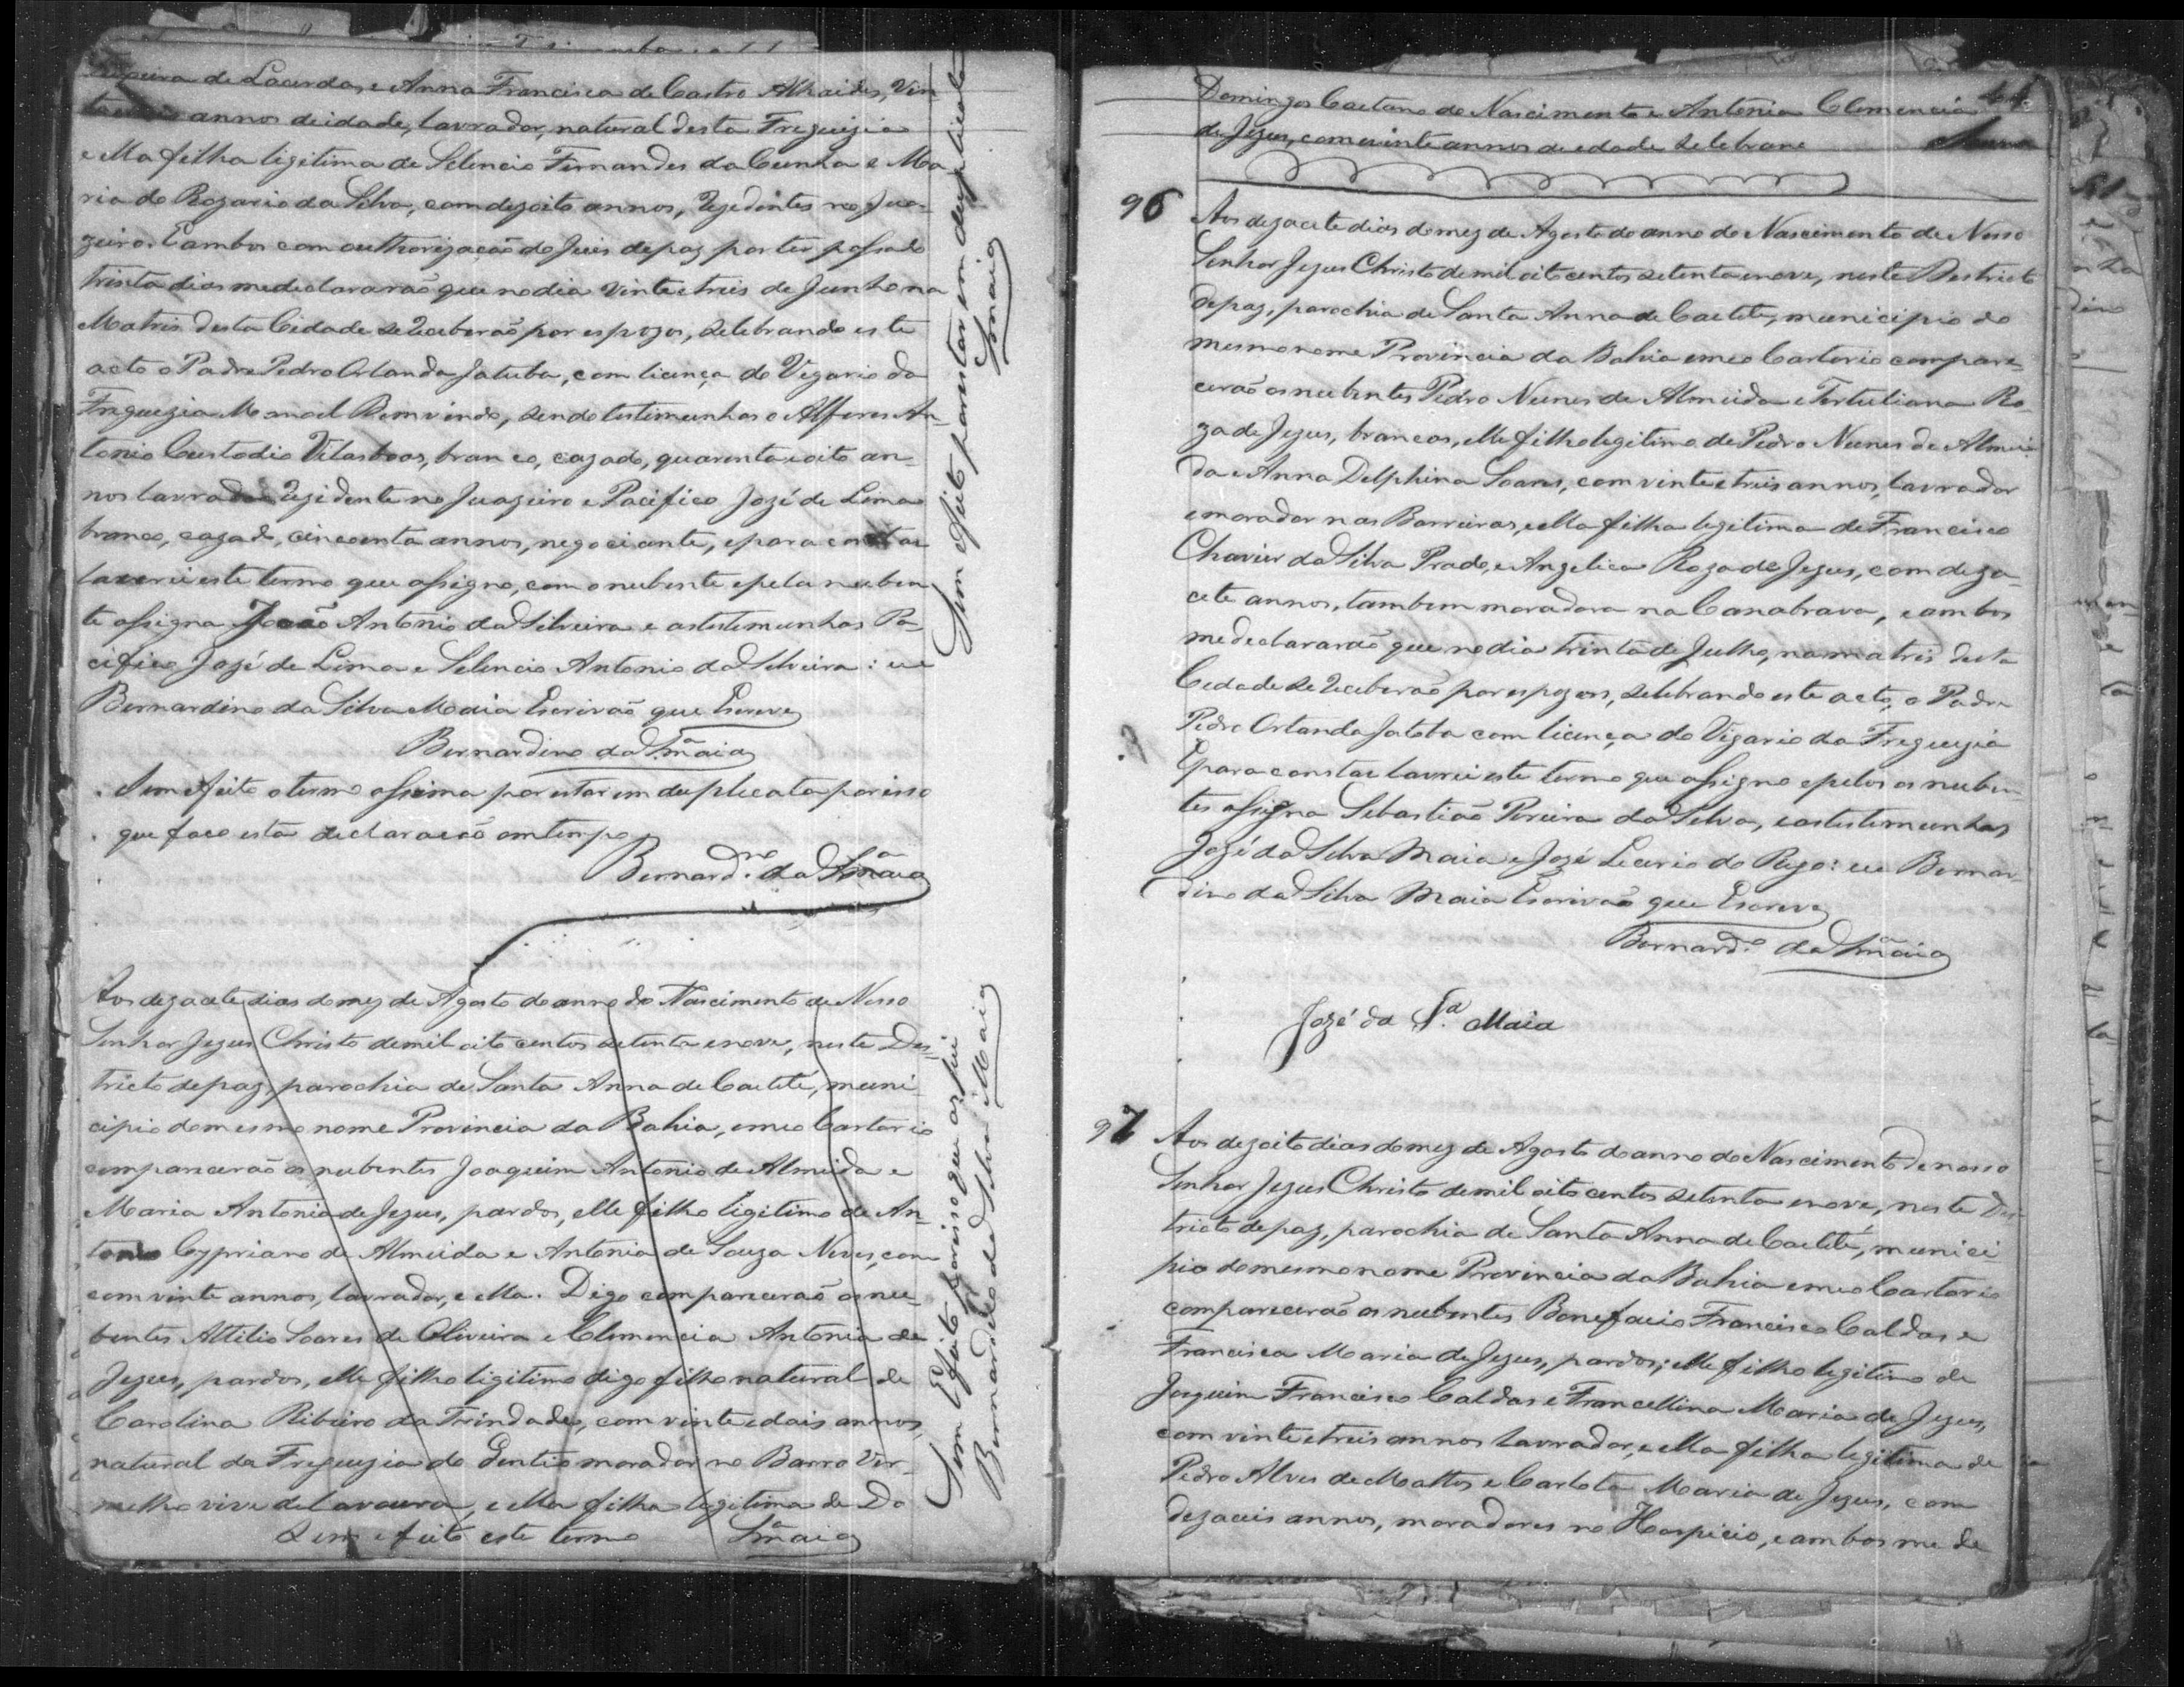 de Lacerda, e Anna Francisca de Castro Athaides, Vin
annos de idade, lavrador, natural desta Freguizia
e ella filha ligitima de Selencio Fernandes da Cunha e Ma
ria do Rozario da Silva, com dezoito annos, rezidentes no Jua
zeiro. E ambos com authorização do Juis de paz por ter passado
trinta dias me declararão que no dia vinte e treis de Junho na
Matris desta Cidade se receberão por espozos, selebrando este
acto o Padre Pedro Orlando Jatuba, com licença do Vigario da
Freguezia Manoel Bemvindo, sendo testimunhas o Alferes An
tonio Custodio Vilasboas, branco, cazado, quarenta e oito an
nos lavrador rezidente no Juazeiro e Pacifico Jozé de Lima
branco, cazado, cincoenta annos, negociante, e para constar
lavrei este termo que assigno, com o nubente e pela nuben
te assigna João Antonio da Silveira e as testemunhas Pa
cifico Jozé de Lima e Selencio Antonio da Silveira: eu
Bernardino da Silva Maia Escrivão que Escrevy
Bernardino da S.ª Maia
Sem efeito o termo assima por estar em duplicata por isso
que faco esta declaração em tempo
Bernard.no da S.ª Maia
Sem efeito por estar em duplicata
S.ª Maia
Aos dezacete dias do mez de Agosto do anno do Nascimento de Nosso
Senhor Jezus Christo de mil oito centos setenta e nove, neste Des
tricto de paz, parochia de Santa Anna de Caeteté, muni
cipio do mesmo nome Provincia da Bahia, em eo Cartorio
comparecerão os nubentes Joaquim Antonio de Almeida e
Maria Antonia de Jezus, pardos, elle filho ligitimo de An
tonio Cypriano de Almeida e Antonia de Souza Neves, com
com vinte annos, lavrador, e ella. Digo comparecerão os nu
bentes Attilio Soares de Oliveira e Clemencia Antonia de
Jezus, pardos, elle filho ligitimo digo filho natural de
Carolina Ribeiro da Trindade, com vinte e dois annos,
natural da Freguizia do Gentio morador no Barro Ver
melho vive de lavoura, e ella filha legitima de Do
Sem efeito este termo S.ª Maia
Sem Efeito por isso que as fui
Bernardino da Silva Maia
Domingos Caetano do Nascimento e Antonia Clemencia
de Jezus, com vinte annos de edade selebrane
96
Aos dezacete dias do mez de Agosto do anno do Nascimento de Nosso
Senhor Jezus Christo de mil oito centos setenta e nove, neste Destricto
de paz, parochia de Santa Anna de Caeteté, municipio do
mesmo nome Provincia da Bahia em eo Cartorio compare
cerão os nubentes Pedro Nunes de Almeida e Tertuliana Ro
za de Jezus, brancos, elle filho legitimo de Pedro Nunes de Almei
da e Anna Delphina Soares, com vinte e treis annos, lavrador
e morador nas Barreiras, e ella filha legitima de Francisco
Chavier da Silva Prado, e Angelica Roza de Jezus, com deza
cete annos, tambem moradora na Canabrava, e ambos
me declararão que no dia trinta de Julho, na matris desta
Cidade se receberão por espozos, selebrando este acto, o Padre
Pedro Orlando Jatoba com licença do Vigario da Freguezia
E para constar lavrei este termo que assigno e pelos os nuben
tes assigna Sebastião Pereira da Silva, e as testemunhas
Jozé da Silva Maia e José Licerio do Rego: eu Bernar
dino da Silva Maia Escrivão que Escrevy
Bernard.º da S.ª Maia
Jozé da S.ª Maia
97
Aos dezoito dias do mez de Agosto do anno do Nascimento de nosso
Senhor Jezus Christo de mil oito centos setenta e nove, neste Des
tricto de paz, parochia de Santa Anna de Caeteté, munici
pio do mesmo nome Provincia da Bahia em eo Cartorio
comparecerão os nubentes Bonefacio Francisco Caldas e
Francisca Maria de Jezus, pardos; elle filho legitimo de
Joquim Francisco Caldas e Francellina Maria de Jezus,
com vinte e treis annos lavrador, e ella filha legitima de
Pedro Alves de Mattos e Carlota Maria de Jezus, com
dezaceis annos, moradores no Hospicio, e ambos me de